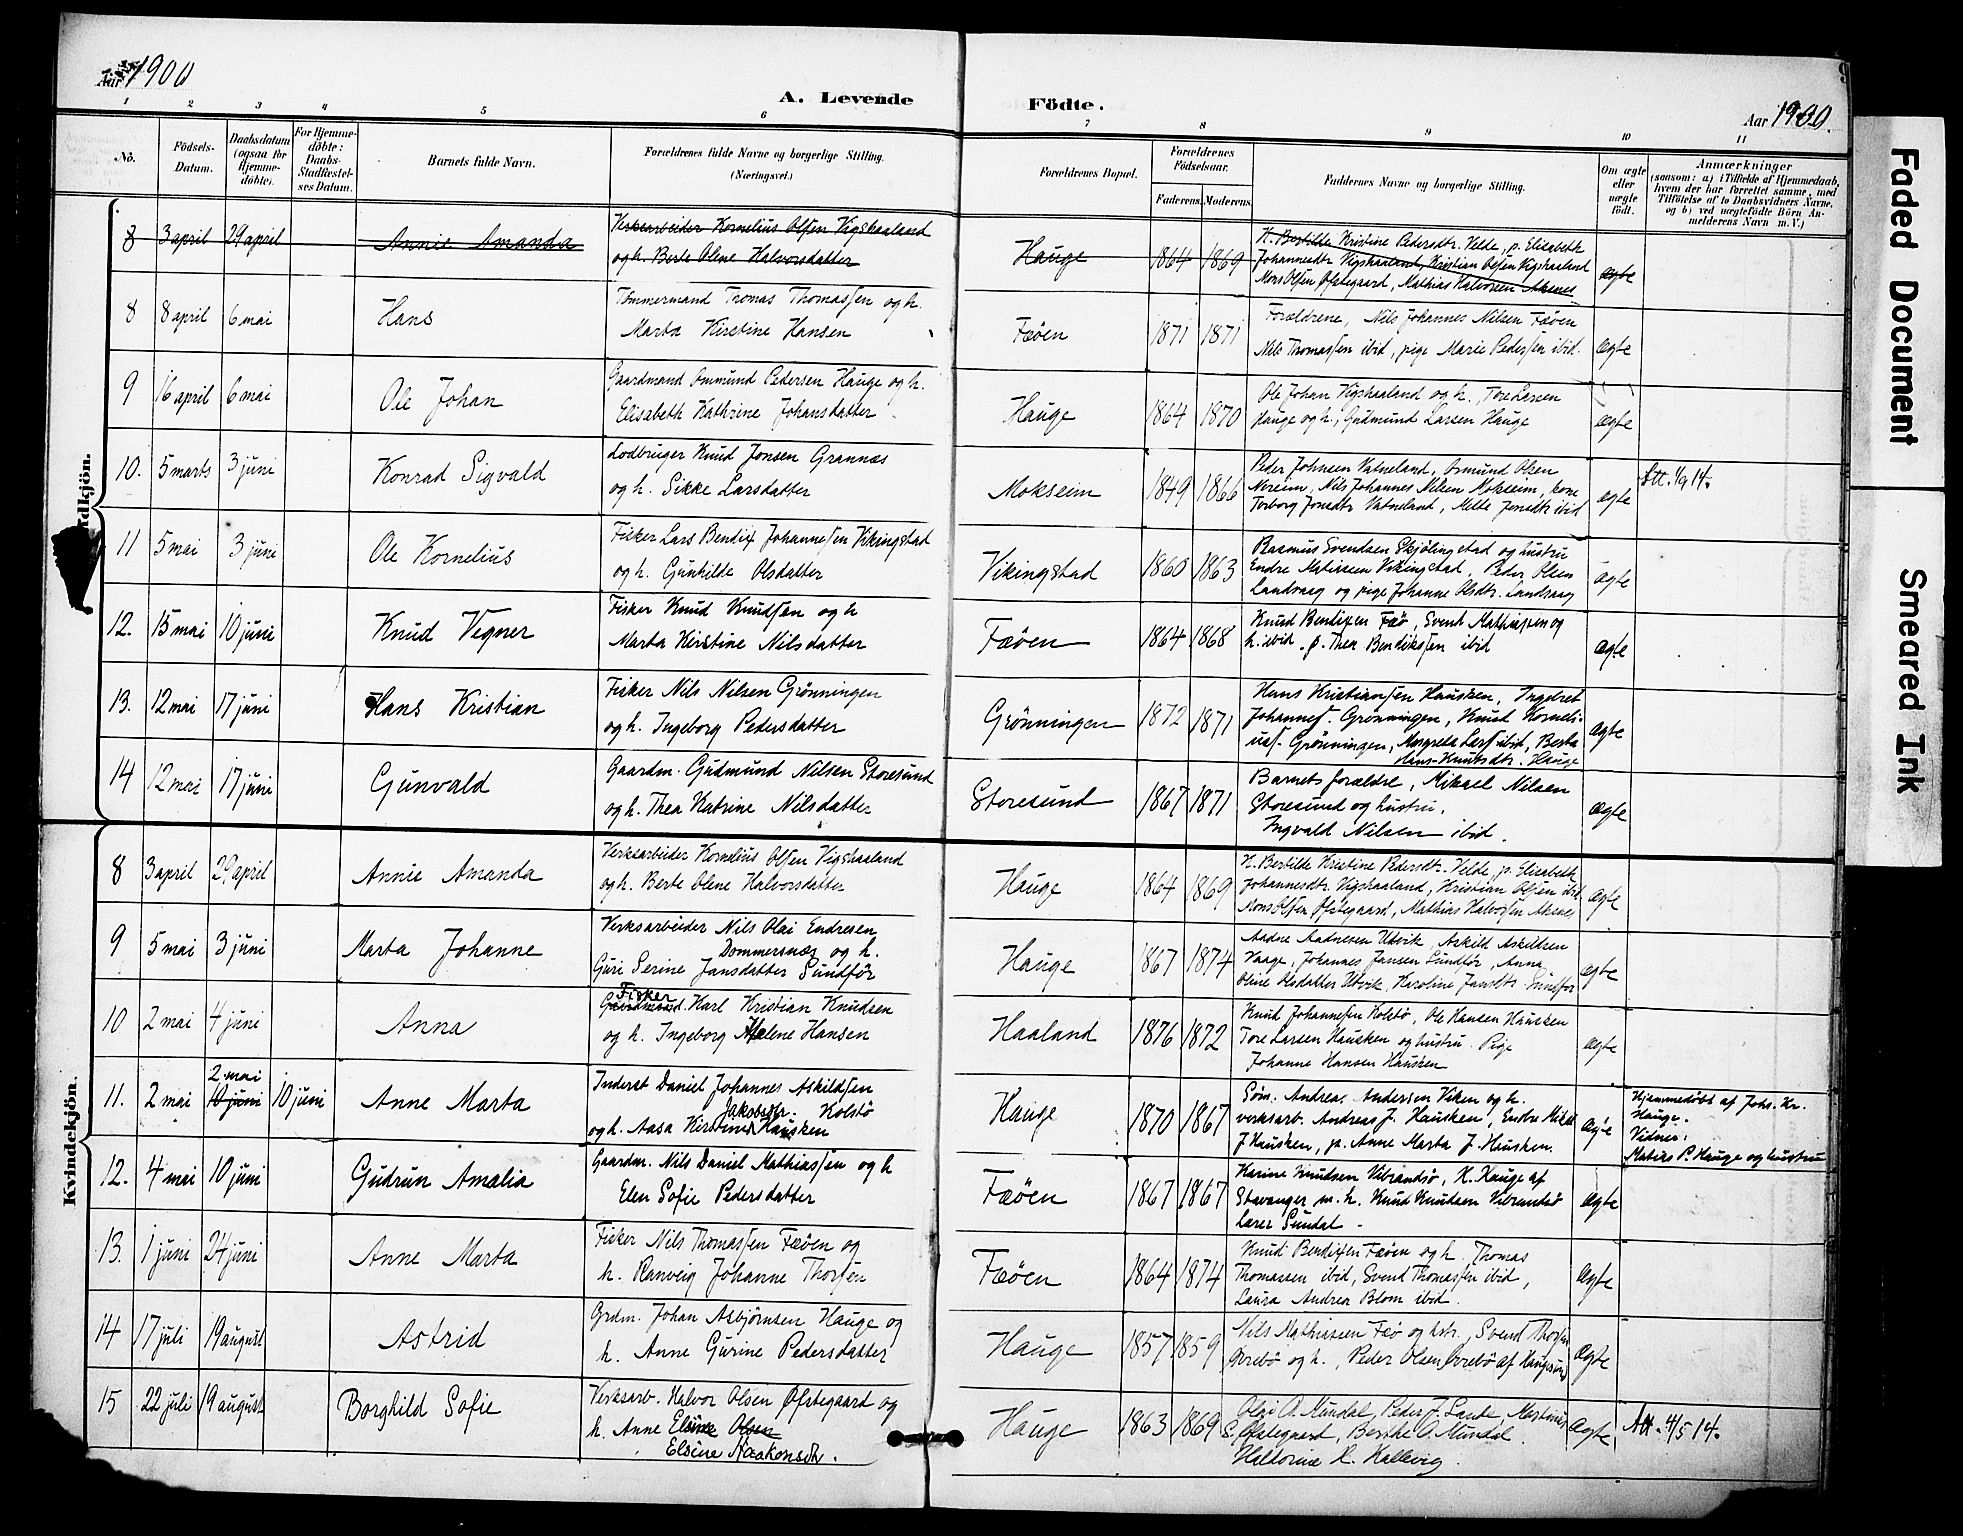 Aar 1900
A. Levende Födte.
Aar 1900.
1 2 3 4 5 6 7 8 9 10 11
No.
Födsels-Datum.
Daabsdatum (ogsaa for Hjemme-döbte).
For Hjemme-döbte: Daabs-Stadfæstel-ses Datum.
Barnets fulde Navn.
Forældrenes fulde Navne og borgerlige Stilling. (Næringsvei.)
Forældrenes Bopæl.
Forældrenes Födselsaar.
Faderens. Moderens.
Faddernes Navne og borgerlige Stilling.
Om ægte eller uægte födt.
Anmærkninger
(saasom: a) i Tilfælde af Hjemmedaab,
hvem der har forrettet samme, med
Tilföielse af to Daabsvidners Navne,
og b) ved uægtefödte Börn An-
melderens Navn m. V.)
8 3 april 29 april Annie Amanda
Verksarbeider Kornelius Olsen Vigshaaland
og h. Berte Olene Halvorsdatter
Hauge 1864 1869
H. Bertilde Kristine Pedersdtr. Velde, p. Elisabeth
Johannesdtr Vigshaaland, Kristian Olsen Vigshaaland
Mons Olsen Øfstegaard, Mathias Halvorsen Aknes
ægte
8 8 april 6 mai Hans
Tømmermand Tomas Thomassen og h.
Marta Kirstine Hansen
Føøen 1871 1871
Forældrene, Nils Johannes Nilsen Føøen
Nils Thomassen ibid, pige Marie Pedersen ibid.
ægte
9 16 april 6 mai Ole Johan
Gaardmand Ommund Pedersen Hauge og h.
Elisabeth Kathrine Johansdatter
Hauge 1864 1870
Ole Johan Vigshaaland og h., Tore Larsen
Hauge og h., Gudmund Larsen Hauge
ægte
10. 5 marts 3 juni Konrad Sigvald
Lodbruger Knud Jonsen Grannæs
og h. Sikke Larsdatter
Mokseim 1849 1866
Peder Johnsen Vatneland, Osmund Olsen
Noreim, Nils Johannes Nilsen Mokseim, kone
Torborg Jonsdtr Vatneland, Melte Jonsdtr ibid
ægte
11 5 mai 3 juni Ole Kornelius
Fisker Lars Bendix Johannessen Vikingstad
og h. Gunhilde Olsdatter
Vikingstad 1860 1863
Rasmus Svendsen Skjølingstad og hustru
Endre Matiassen Vikingstad, Peder Olsen
Landvaag og pige Johanne Olsdtr. Landvaag
ægte
12. 15 mai 10 juni Knud Vegner
Fisker Knud Knudsen og h
Marta Kirstine Nilsdatter
Føøen 1864 1868
Knud Bendixen Føø, Svend Mathiassen og
h. ibid. p. Thea Bendiksen ibid
ægte
13. 12 mai 17 juni Hans Kristian
Fisker Nils Nilsen Grönningen
og h. Ingeborg Pedersdatter
Grönningen 1872 1871
Hans Kristiansen Hausken, Ingebret
Johannes. Grønningen, Knud Korneli-
uss. Grönningen, Margrete Lars. ibid, Berta
Hans-Knutsdtr. Hauge
ægte
14 12 mai 17 juni Gunvald
Gaardm. Gudmund Nilsen Storesund
og h. Thea Katrine Nilsdatter
Storesund 1867 1871
Barnets forældre, Mikael Nilsen
Storesund og hustru.
Ingvald Nilsen ibid.
ægte
Kvindekjön.
8 3 april 29 april Annie Amanda
Verksarbeider Kornelius Olsen Vigshaaland
og h. Berte Olene Halvorsdatter
Hauge 1864 1869
H. Bertilde Kristine Pedersdtr. Velde, p. Elisabeth
Johannesdtr. Vigshaaland, Kristian Olsen ibid
Mons Olsen Øfstegaard, Mathias Halvorsen Aknes
ægte
9 5 mai 3 juni Marta Johanne
Verksarbeider Nils Olai Endresen
Dommersnæs og h.
Guri Serine Jansdatter Sundför
Hauge 1867 1874
Aadne Aadnesen Utvik, Askild Askildsen
Vaage, Johannes Jansen Sundfør, Anna
Oline Olsdatter Utvik, Karoline Jansdtr. Sundfor
ægte
10 2 mai 4 juni Anna
Fisker
Gaardmand Karl Kristian Knudsen
og h. Ingeborg Malene Hansen
Haaland 1876 1872
Knud Johannesen Kolstø, Ole Hansen Hausken
Tore Larsen Hausken og hustru. Pige
Johanne Hansen Hausken
ægte
11. 2 mai 2 mai 10 juni 10 juni Anne Marta
Inderst Daniel Johannes Askildsen
Jakobsdtr. Kolstö
og h. Aasa Kirstine Hausken
Hauge 1870 1867
Søm. Andreas Andersen Viken og h.
verksarb. Andreas J. Hausken, Endre Mikal
J Hausken, p. Anne Marta J. Hausken.
ægte
Hjemmedøbt af Johs. Kr.
Hauge.
Vidner:
Matias P. Hauge og hustru
12. 4 mai 10 juni Gudrun Amalia
Gaardm. Nils Daniel Mathiassen og h
Elen Sofie Pedersdatter
Føøen 1867 1867
Karine Knudsen Vibrandsø, K. Hauge af
Stavanger m. h. Knud Knudsen Vibrandsø
Lærer Sundal.
ægte
13. 1 juni 24 juni Anne Marta
Fisker Nils Thomassen Føøen og
h. Ranveig Johanne Thorsen
Føøen 1864 1874
Knud Bendixen Føøen og h. Thomas
Thomassen ibid, Svend Thomassen ibid,
Laura Andrea Blom ibid.
ægte
14 17 juli 19 august Astrid
Grdm. Johan Asbjørnsen Hauge og
h. Anne Gurine Pedersdatter
Hauge 1857 1859
Nils Mathiassen Føø og hstr., Svend Thorsen
Øvrebö og h., Peder Olsen Øvrebö af Haugesund
ægte
15 22 juli 19 august Borghild Sofie
Verksarb. Halvor Olsen Øfstegaard og
h. Anne Elsine Olsen
Elsine Haakonsdtr.
Hauge 1863 1869
Olai O. Mundal, Peder J. Lande, Martinus
E. Øfstegaard, Berthe O. Mundal.
Haldorine R. Hallevig.
ægte
Att. 4/5 14.
Faded Document
Smeared Ink